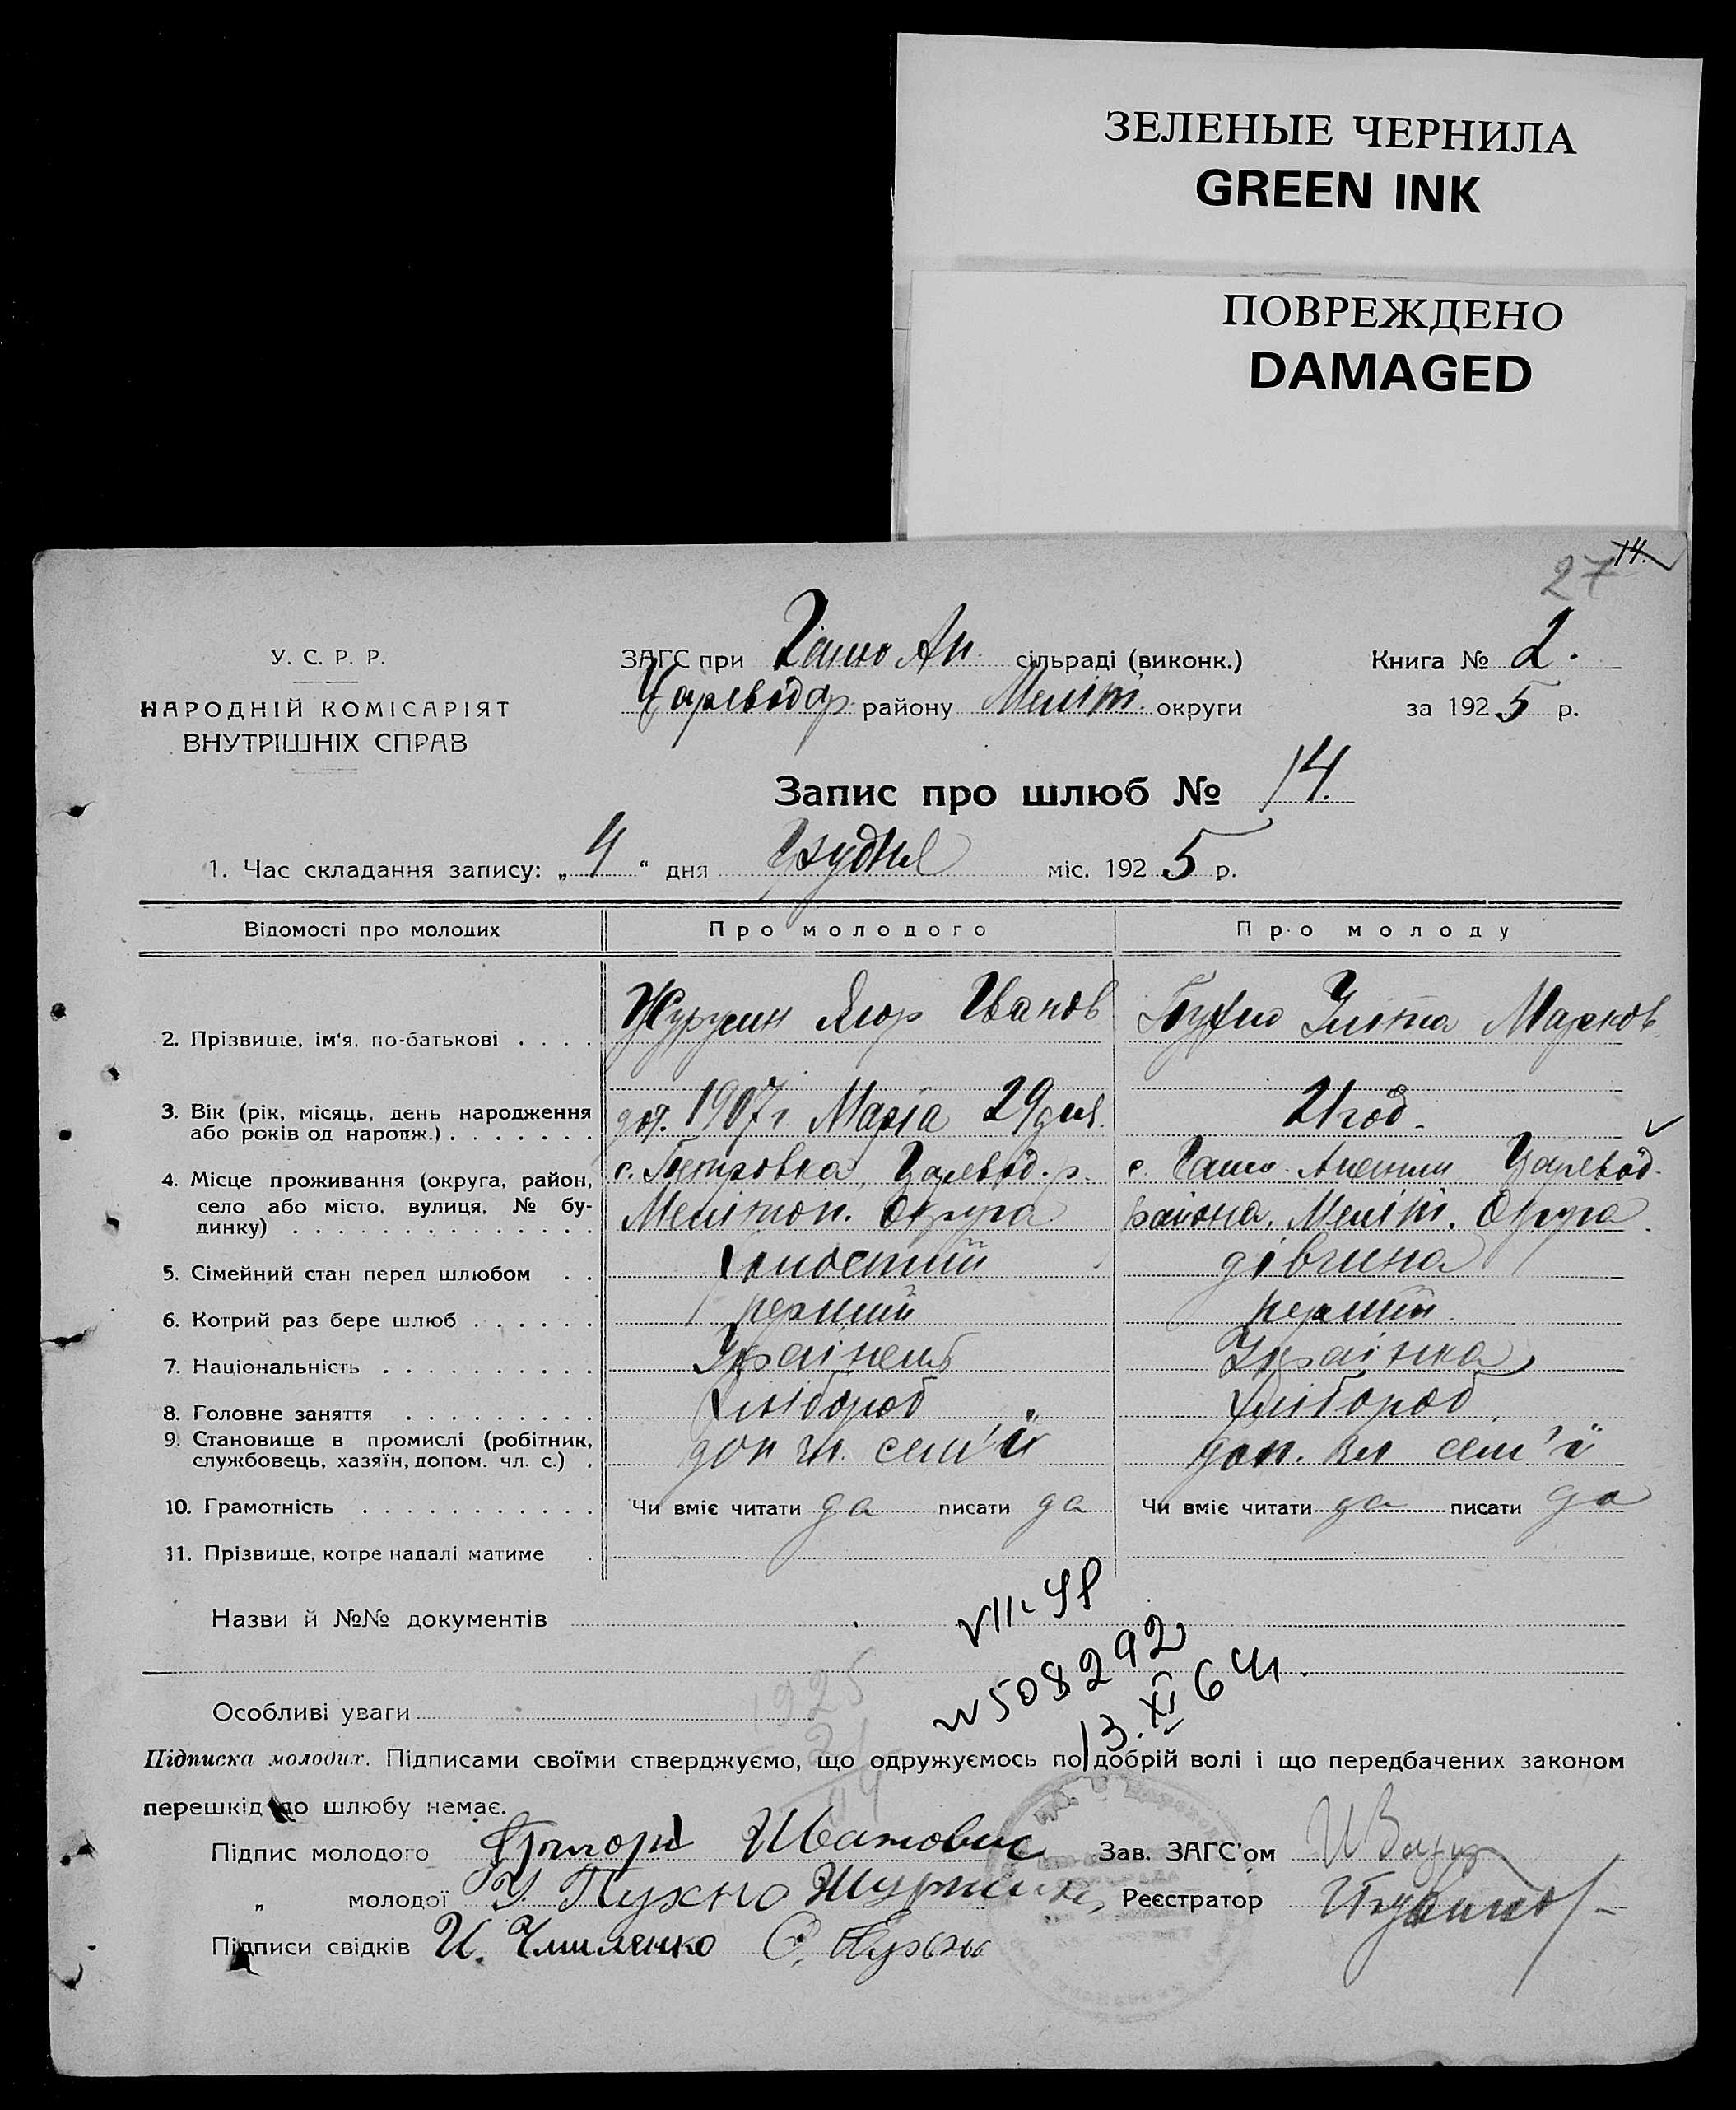 ЗЕЛЕНЫЕ ЧЕРНИЛА
GREEN INK
ПОВРЕЖДЕНО
DAMAGED
27 14.
У. С. Р. Р.
НАРОДНІЙ КОМІСАРІЯТ
ВНУТРІШНІХ СПРАВ
ЗАГС при сільраді (виконк.)
Царевод р. району Меліт. округи
Книга № 2.
за 1925 р.
Запис про шлюб № 14.
1. Час складання запису: „4“ дня Грудня міс. 1925 р.
Відомості про молодих Про молодого Про молоду
2. Прізвище, ім'я, по-батькові . . . . Іванов Марков.
3. Вік (рік, місяць, день народження 1907 г. Марта 29 дня. 21 год.
або років од народж.) . . . . . . .
4. Місце проживання (округа, район, с. Петровка, Царевод. р. с. Царевод.
село або місто, вулиця, № бу- Мелітоп. Округа района, Меліт. Округа.
динку) . . . . . . . . . . . . . .
5. Сімейний стан перед шлюбом . . Холостий дівчина
6. Котрий раз бере шлюб . . . . . . перший перший.
7. Національність . . . . . . . . . . Українець Українка
8. Головне заняття . . . . . . . . . Хлібороб „ Хлібороб
9. Становище в промислі (робітник, доп чл. сем'ї доп. чл сем'ї
службовець, хазяїн, допом. чл. с.) .
10. Грамотність . . . . . . . . . . . Чи вміє читати да писати да Чи вміє читати да писати да
11. Прізвище, котре надалі матиме .
Назви й №№ документів
508292
13. XI 64 г.
Особливі уваги
1925
Підписка молодих. Підписами своїми стверджуємо, що одружуємось по добрій волі і що передбачених законом
перешкід до шлюбу немає.
Підпис молодого Иванович Зав. ЗАГС'ом
„ молодої У. Пухно Реєстратор
Підписи свідків И. С.